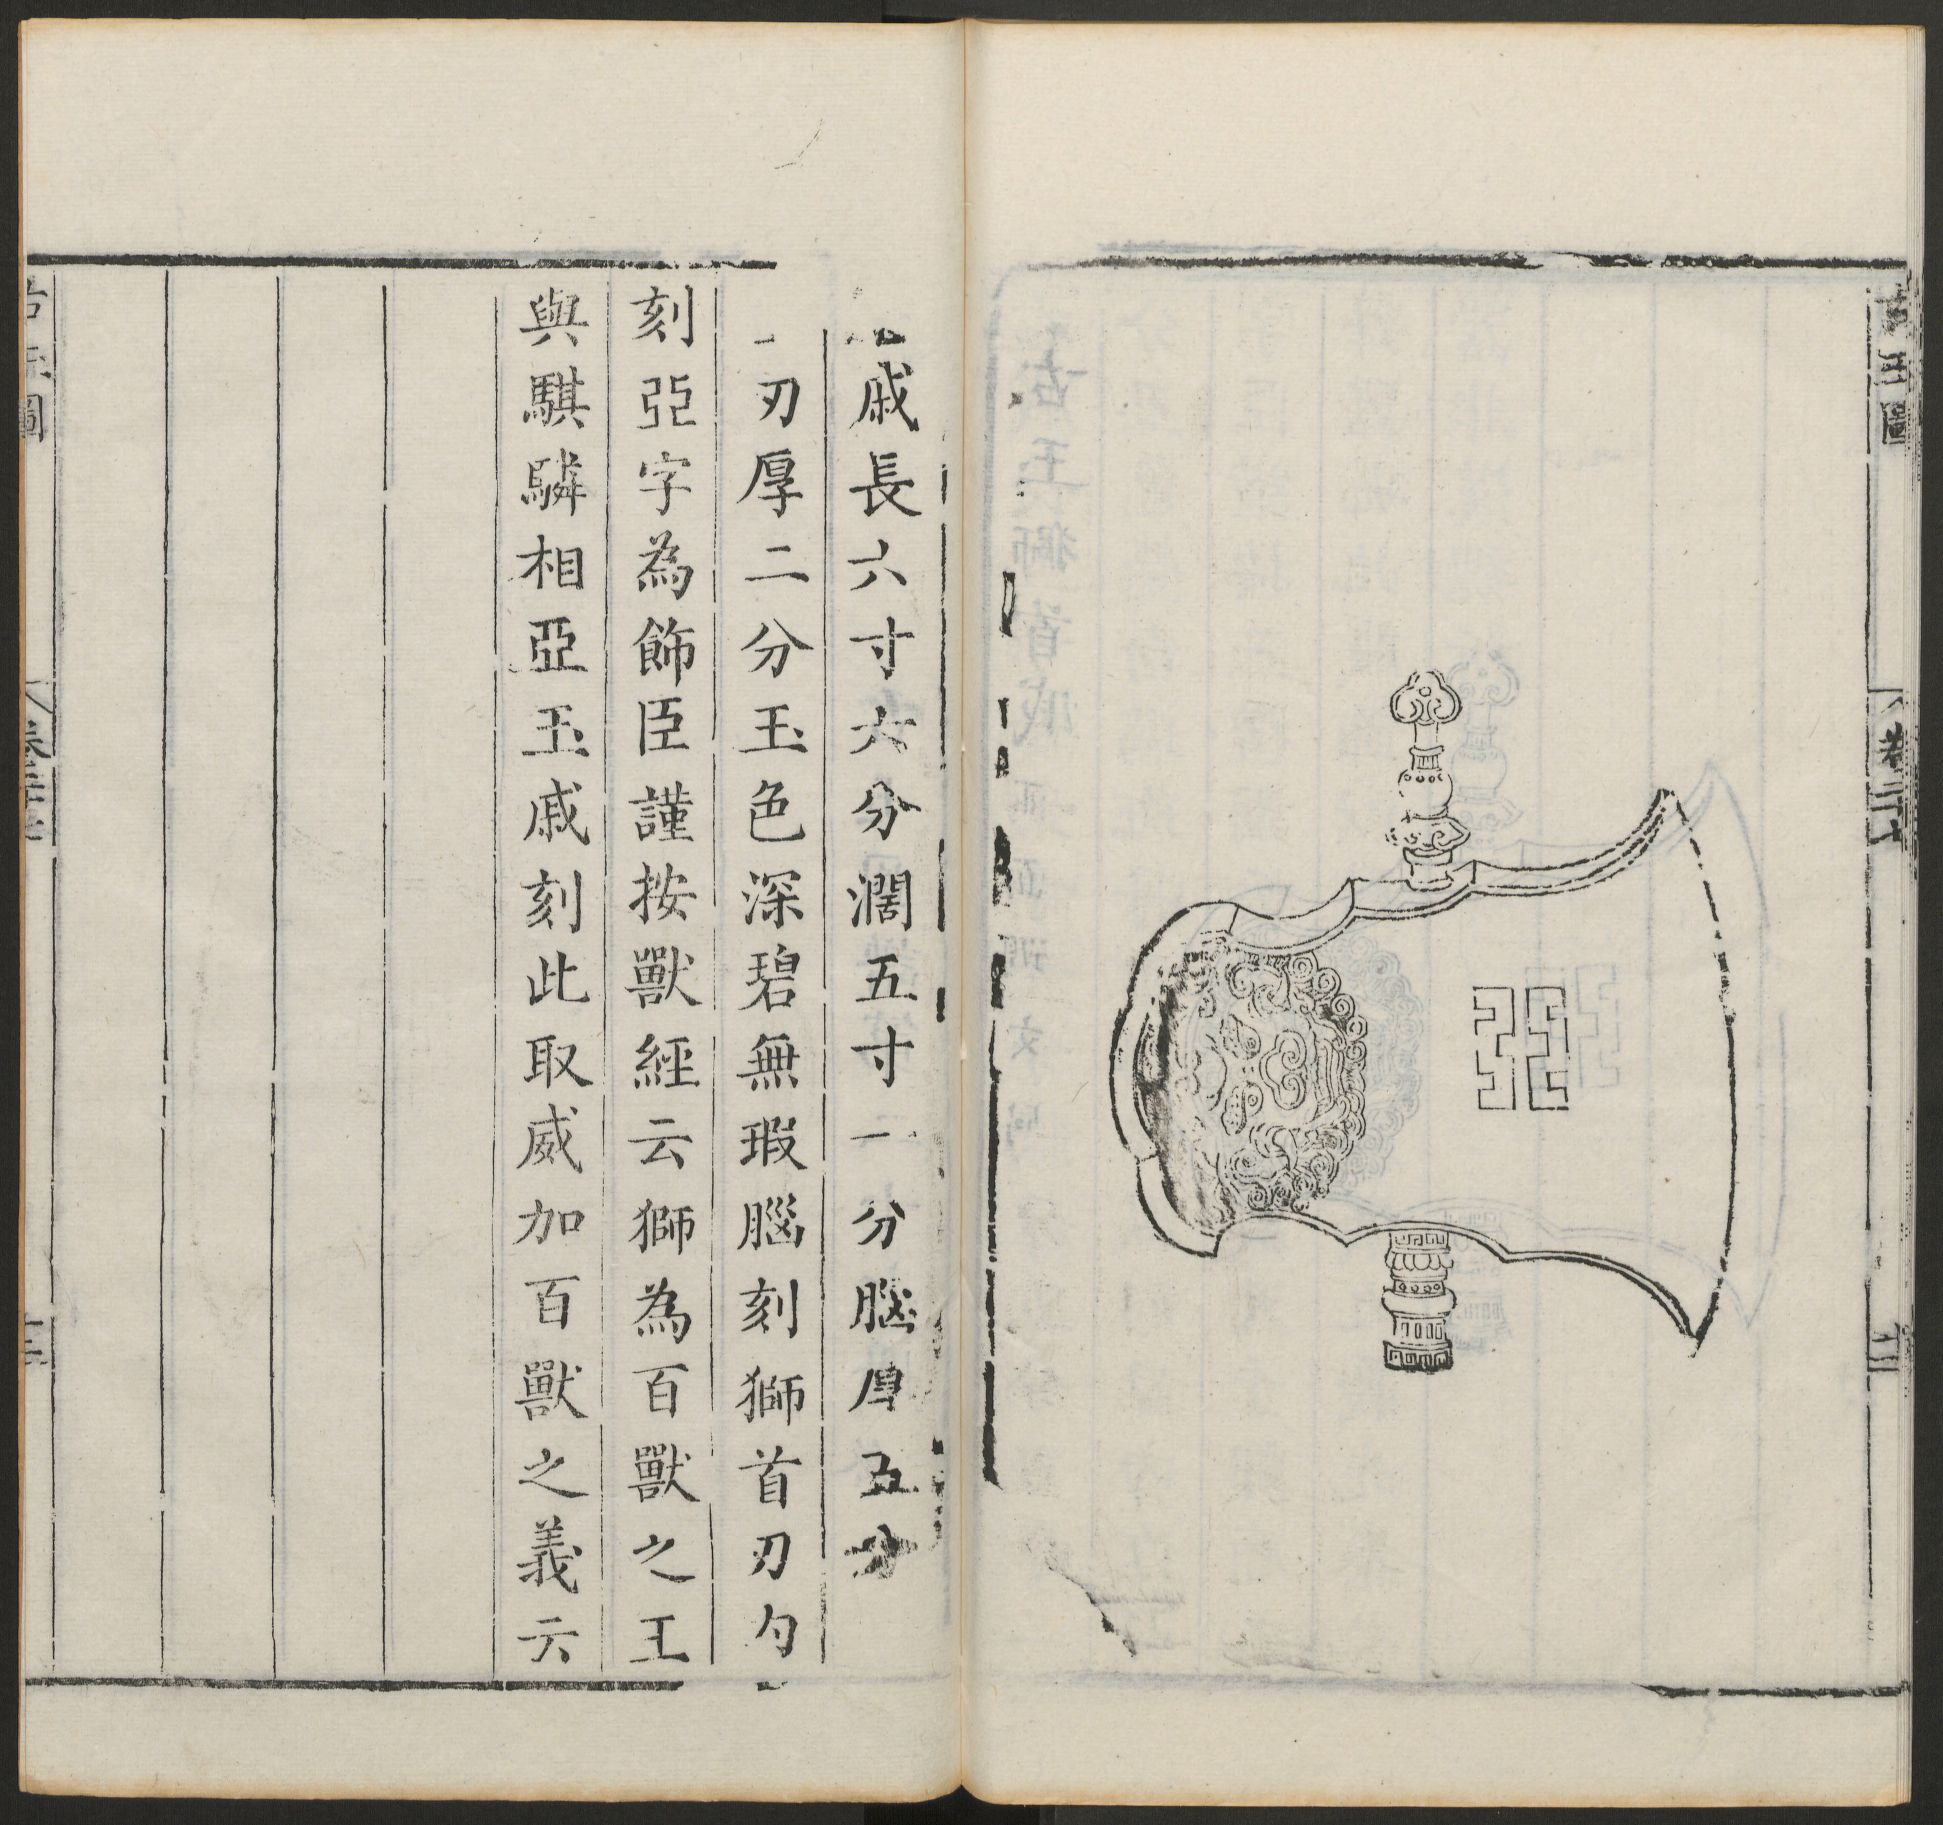 古玉圖
戚長六寸六分濶五寸一分腦厚五分
刃厚二分玉色深碧無瑕腦刻獅首刃勺
刻亞字為飾臣謹按獸經云獅為百獸之王
與騏驎相亞玉戚刻此取威加百獸之義云